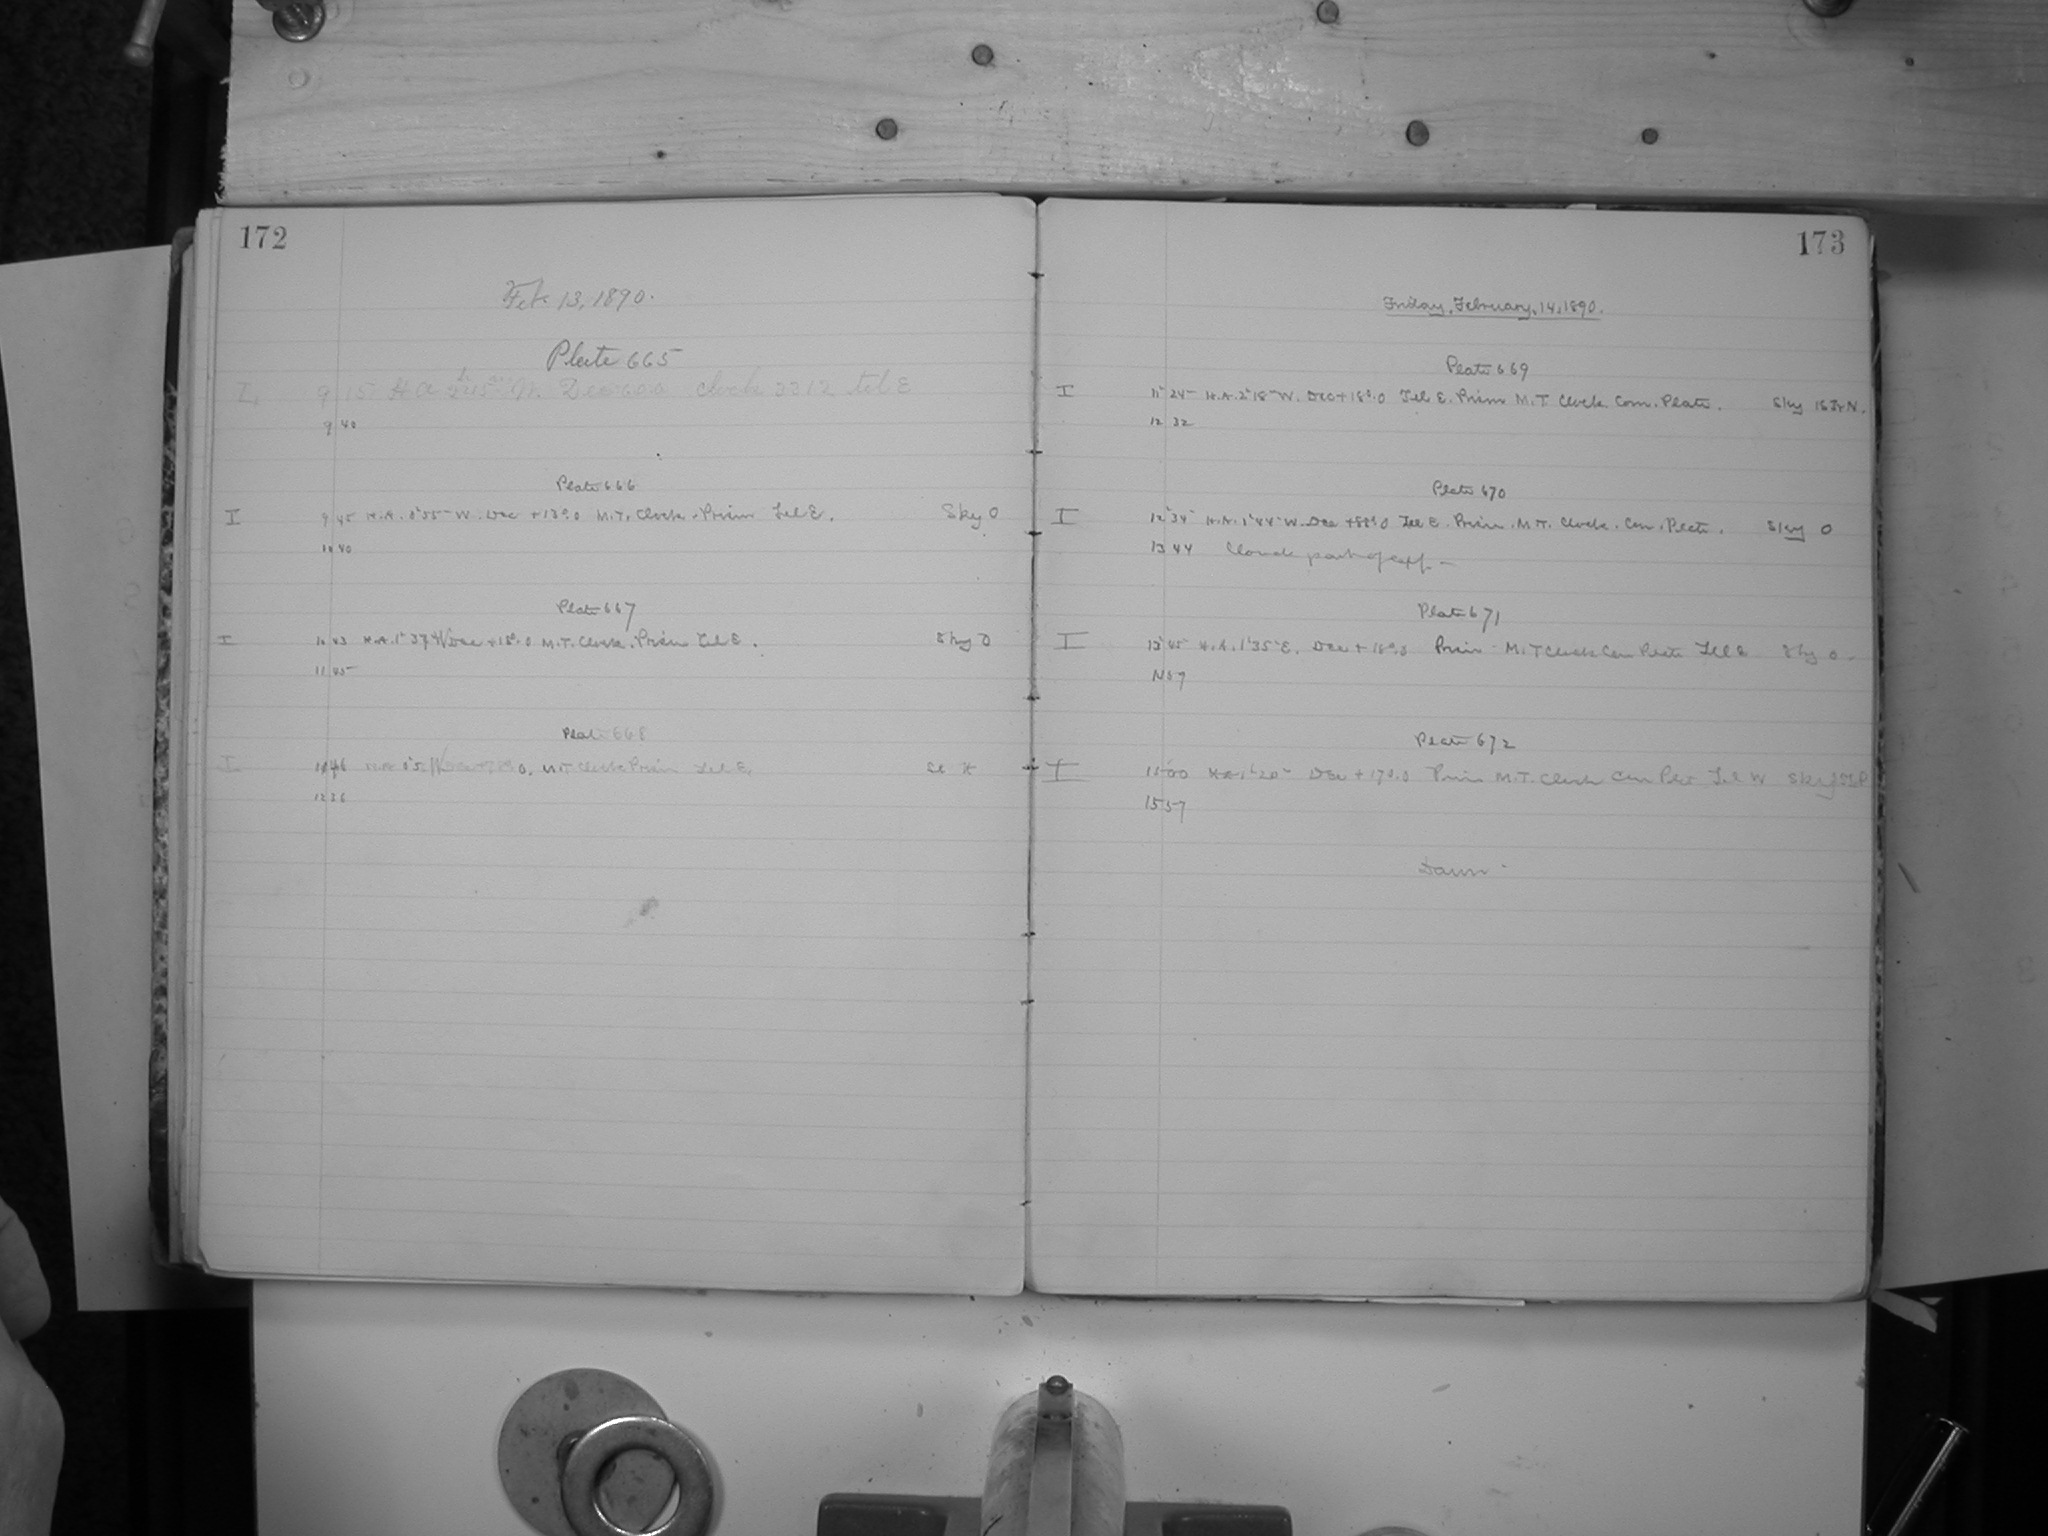 172
Feb. 13, 1890.
Plate 665
9 15 H A Clock 3312 tel E
9 40
Plate 666
I 9 45 H.A. 0 55 W. Dec +13°.0 M.T. Clock. Prism Tel E. Sky 0
10 40
Plate 667
I 10 43 H.A. 1 37 W Dec +18°.0 M.T. Clock. Prism Tel E. Sky 0
11 45
Plate 668
I M.T Clock Prism Tel E.
12 36
173
Friday, February, 14, 1890.
Plate 669
I 11 24 H.A. 2 18 W. Dec + 18°.0 Tel E. Prism M.T Clock. Com. Plate. Sky
12 32
Plate 670
I 12 34 H.A. 1 44 W. Dec +88°.0 Tel E. Prism. M.T. Clock. Com. Plate. Sky 0
13 44 Clouds part of exp. -
Plate 671
I 13 45 H.A. 1 35 E. Dec + 18°.0 Prism M.T Clock Com Plate Tel E Sky 0 -
14 57
Plate 672
I 15 00 H.A. 1 20 Dec + 17°.0 Prism M.T. Clock Com Plate Tel W Sky
15 57
Dawn